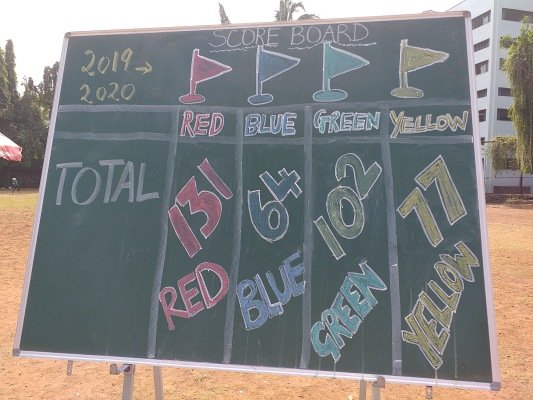 SCORE BOARD
2019 →
2020
RED BLUE GREEN YELLOW
TOTAL 131 64 102 77
RED BLUE GREEN YELLOW